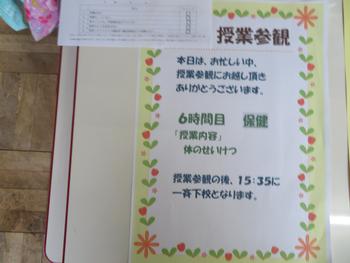 授業参観
本日は、お忙しい中、
授業参観にお越し頂き
ありがとうございます。
6時間目　保健
「授業内容」
体のせいけつ
授業参観の後、15:35に
一斉下校となります。